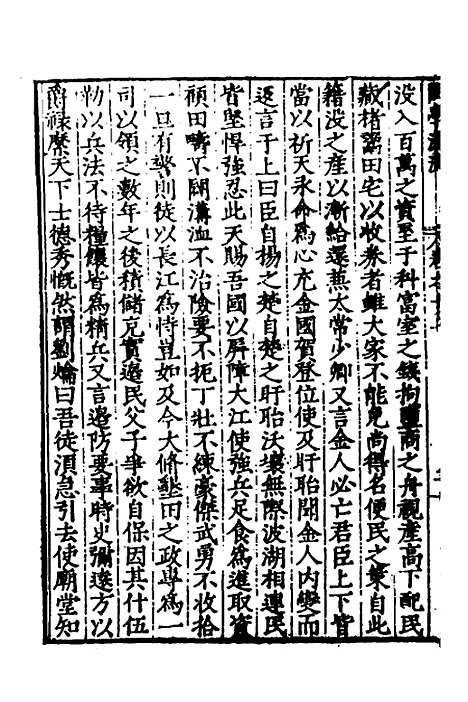 没入百萬之貲至于科富室之錢拘鹽商之舟視產高下配民
藏楮鬻田宅以收券者雖大家不能免尚得名便民之策自此
籍没之產以漸給還兼太常少卿又言金人必亡君臣上下皆
當以祈天永命爲心充金國賀登位使及盱眙聞金人内變而
返言于上曰臣自揚之楚自楚之盱眙沃壤無際陂湖相連民
皆堅悍強忍此天賜吾國以屏障大江使強兵足食爲進取資
顧田疇不闢溝洫不治險要不扼丁壯不練豪傑武勇不收拾
一旦有警則徒以長江爲恃豈如及今大修墾田之政專爲一
司以領之數年之後積儲充實邊民父子爭欲自保因其什伍
勒以兵法不待糧饟皆爲精兵又言邊防要事時史彌遠方以
爵祿縻天下士德秀慨然謂劉爚曰吾徒須急引去使廟堂知